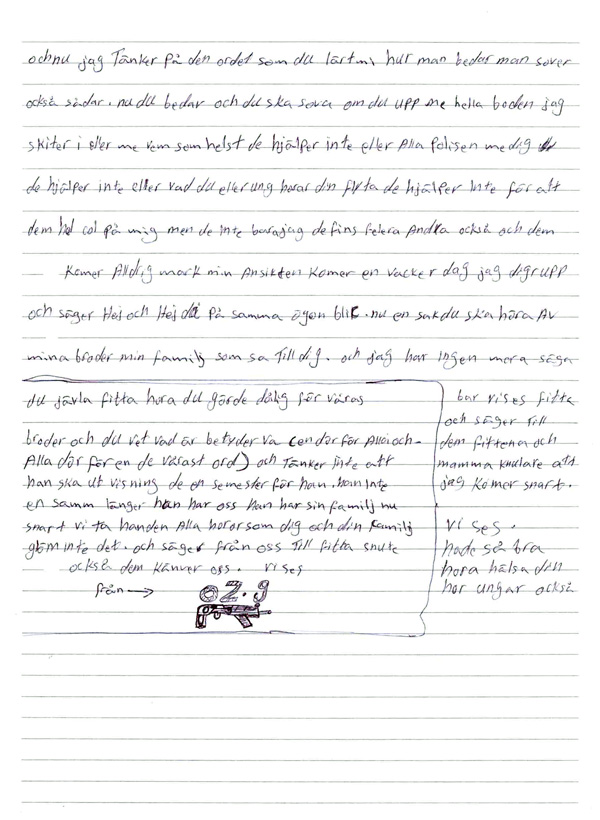 ochnu jag Tänker på den ordet som du lärt mi hur man bedar man sover
också sådar. nu du bedar och du ska sova om du upp me hella boden jag
skiter i eller me vem som helst de hjälper inte eller Alla Polisen me dig
de hjälper inte eller vad du eller ung horar din flyta de hjälper inte för att
dem col på mig men de inte bara jag de fins felera Andra också och dem
Komer Alldrig mark min Ansikten Komer en vacker dag jag digrupp
och säger Hej och Hej då på samma ögon blik. nu en sak du ska höra Av
mina bröder min familj som sa Till dig. och jag har ingen mera säga
du jävla fitta hora du görde dålig för våras
broder och du vet vad är betyder va (en dör för Alla och-
Alla dör för en de vårast ord) och Tänker inte att
han ska ut visning de en semester för han. hom inte
en samm länger han har oss han har sin familj nu
snart vi ta handen Alla horor som dig och din familj
glöm inte det. och säger från oss Till fitta snute
också dem känver oss. vi ses
från → oZ.g
bar vi ses fitta
och säger Till
dem fittena och
mamma knulare att
jag Komer snart.
vi ses.
hade så bra
hora hälsa den
hor ungar också